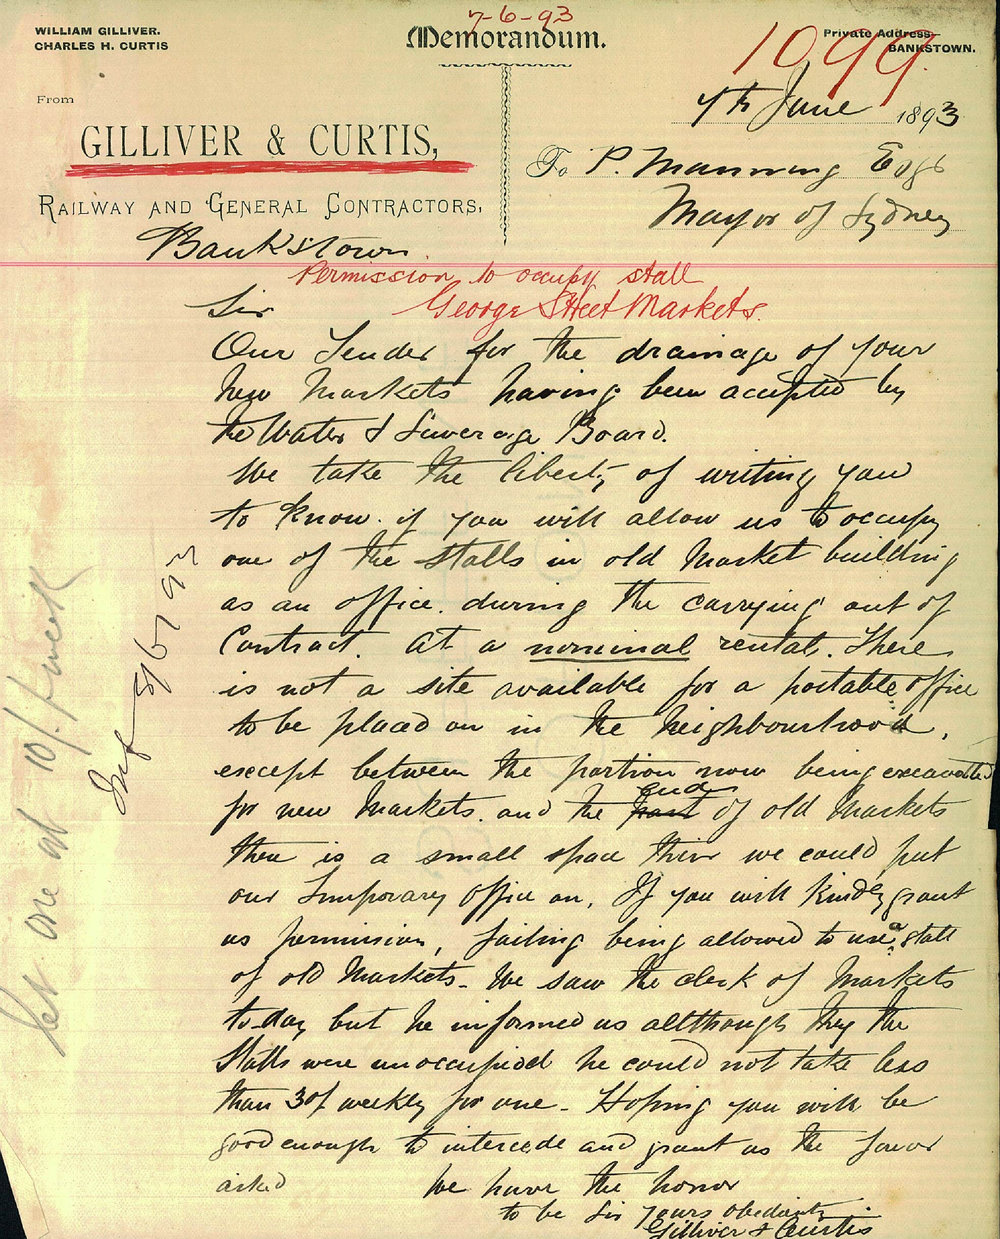 WILLIAM GILLIVER.
CHARLES H. CURTIS
7-6-93
Memorandum.
Private Address
BANKSTOWN.
1099.
From
GILLIVER & CURTIS,
RAILWAY AND GENERAL CONTRACTORS,
Bankstown
7th June 1893
To P. Manning Esqr
Mayor of Sydney
Permission to occupy stall
George Street Markets.
Sir
Our Tender for the drainage of your
New Markets having been accepted by
the Water & Sewerage Board.
We take the liberty of writing you
to know if you will allow us to occupy
one of the Stalls in old Market building
as an office. during the carrying out of
Contract. at a nominal rental. There
is not a site available for a portable office
to be placed on in the neighbourhood,
except between the portion now being excavated
for new Markets. and the part end of old Markets
there is a small space their we could put
our Temporary Office on. If you will kindly grant
us permission, failing being allowed to use a stall
of old Markets. We saw the clerk of Markets
to-day but he informed us allthough they the
Stalls were unoccupied he could not take less
than 30/ weekly for one - Hoping you will be
good enough to intercede and grant us the favor
asked
We have the honor
to be Sir Yours obediently
Gilliver & Curtis
Let one at 10/- per week
8/6/93